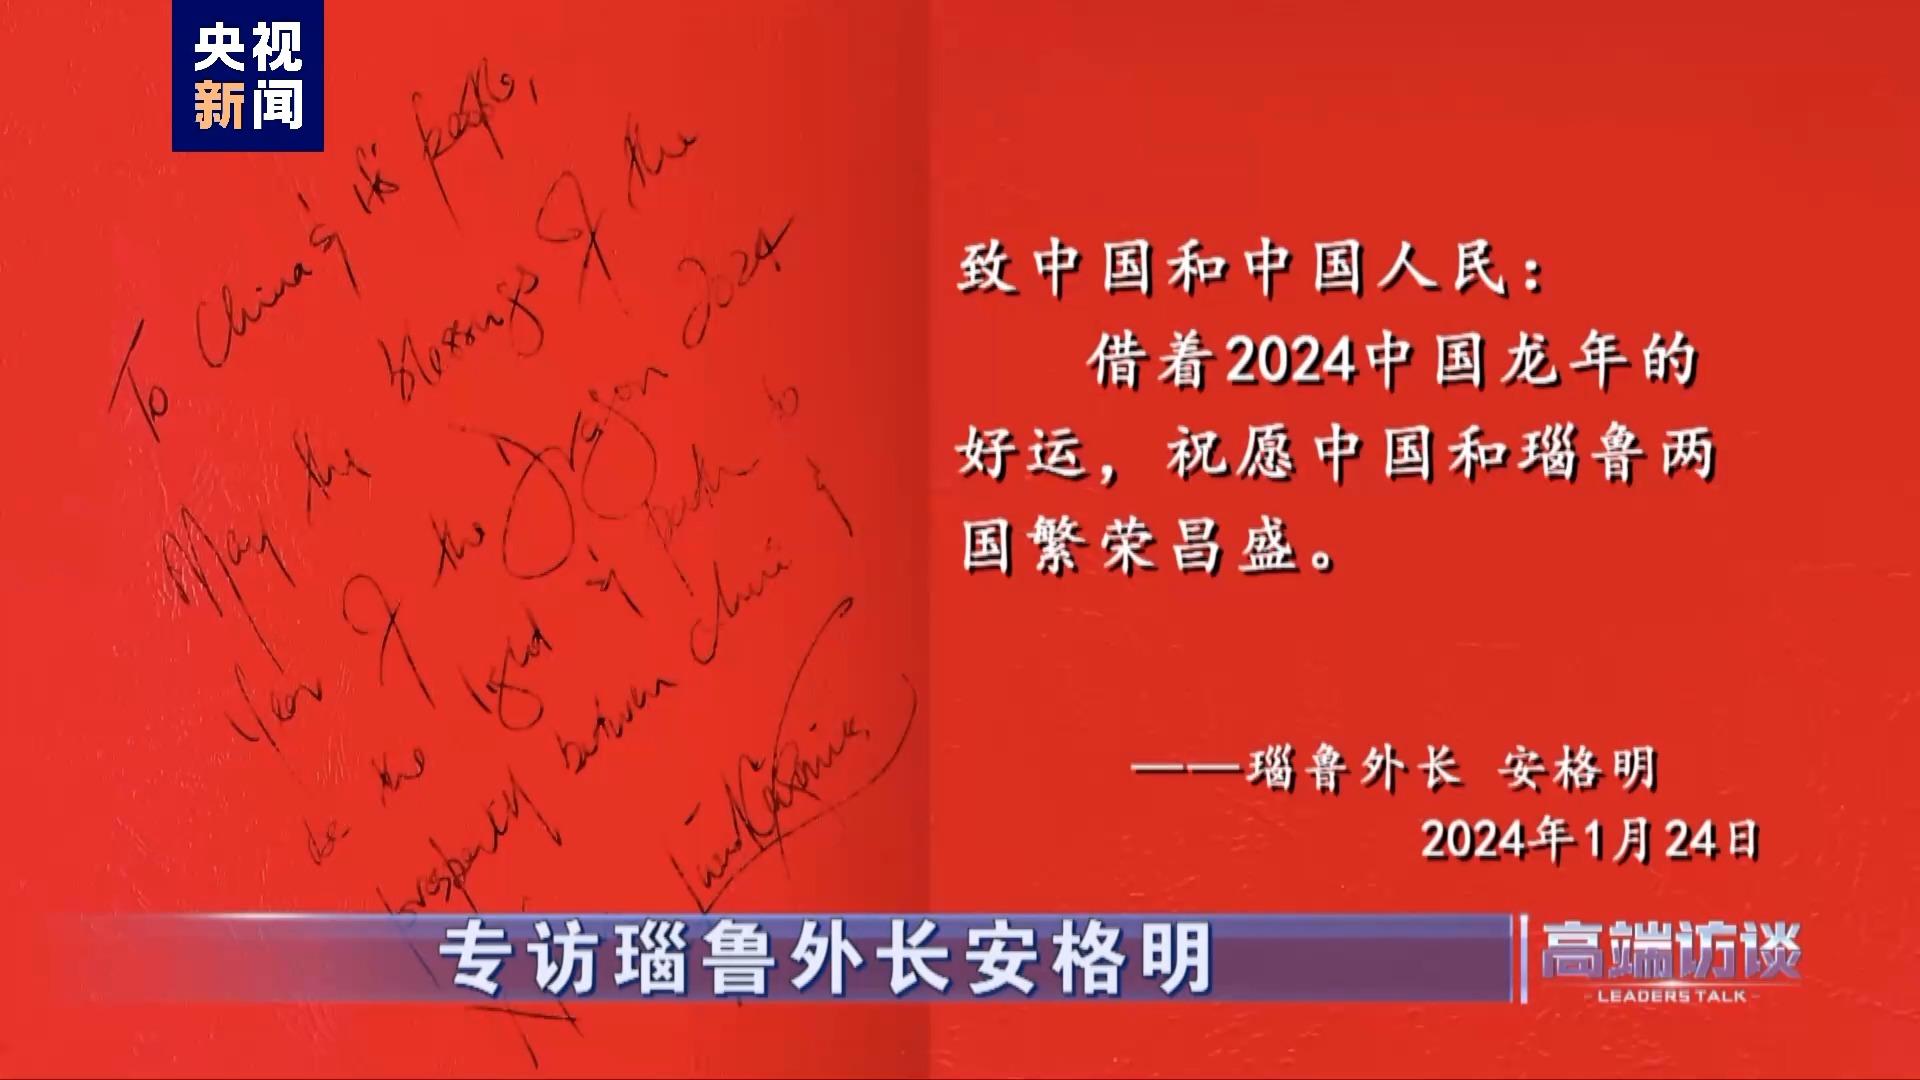 央视
新闻
To China & its people,
May the blessings of the
Year of the Dragon 2024
be the light & path to
prosperity between China &
致中国和中国人民：
借着2024中国龙年的
好运，祝愿中国和瑙鲁两
国繁荣昌盛。
——瑙鲁外长 安格明
2024年1月24日
专访瑙鲁外长安格明
高端访谈
LEADERS TALK